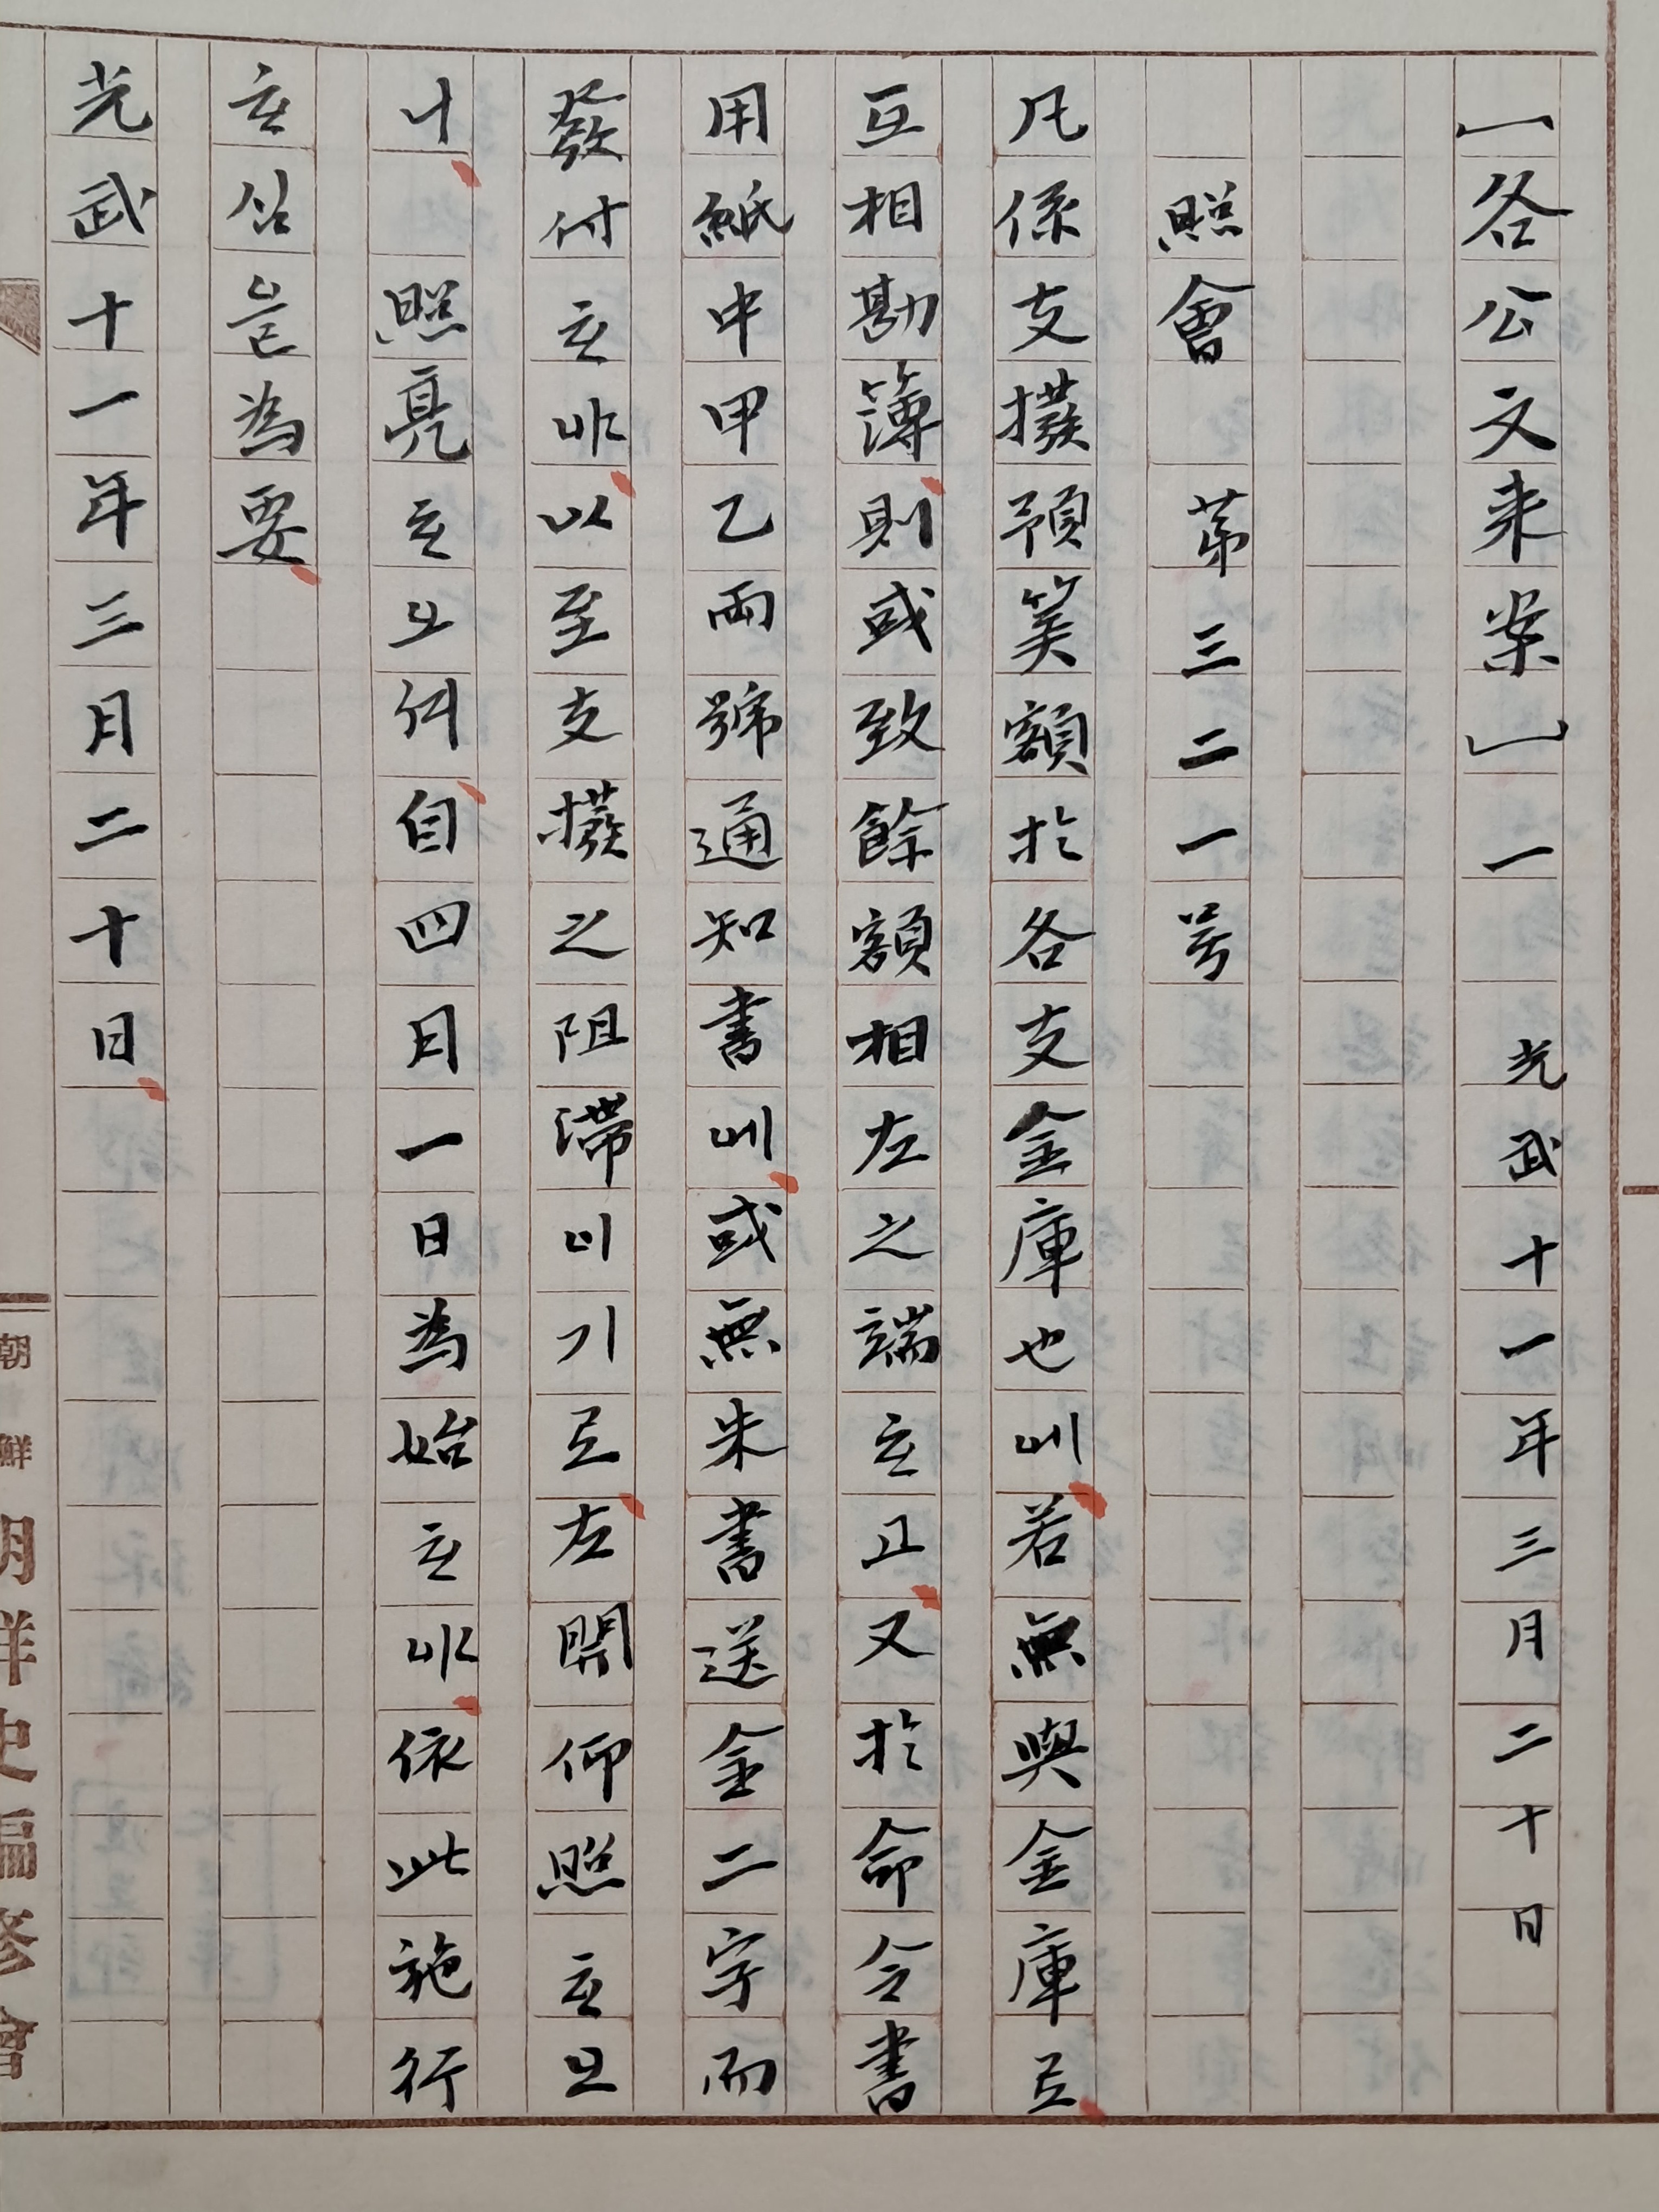 「各公文来案」一 光武十一年三月二十日
照會 苐三二一号
凡係支撥預筭額於各支金庫也에若無與金庫로
互相勘簿則或致餘額相左之端하고又於命令書
用紙中甲乙兩號通知書에或無朱書送金二字而
發付하야以至支撥之阻滯이기로左開仰照하오
니 照亮하오셔自四月一日為始하야依此施行
하심을為要
光武十一年三月二十日
朝鮮 朝鮮史編修會